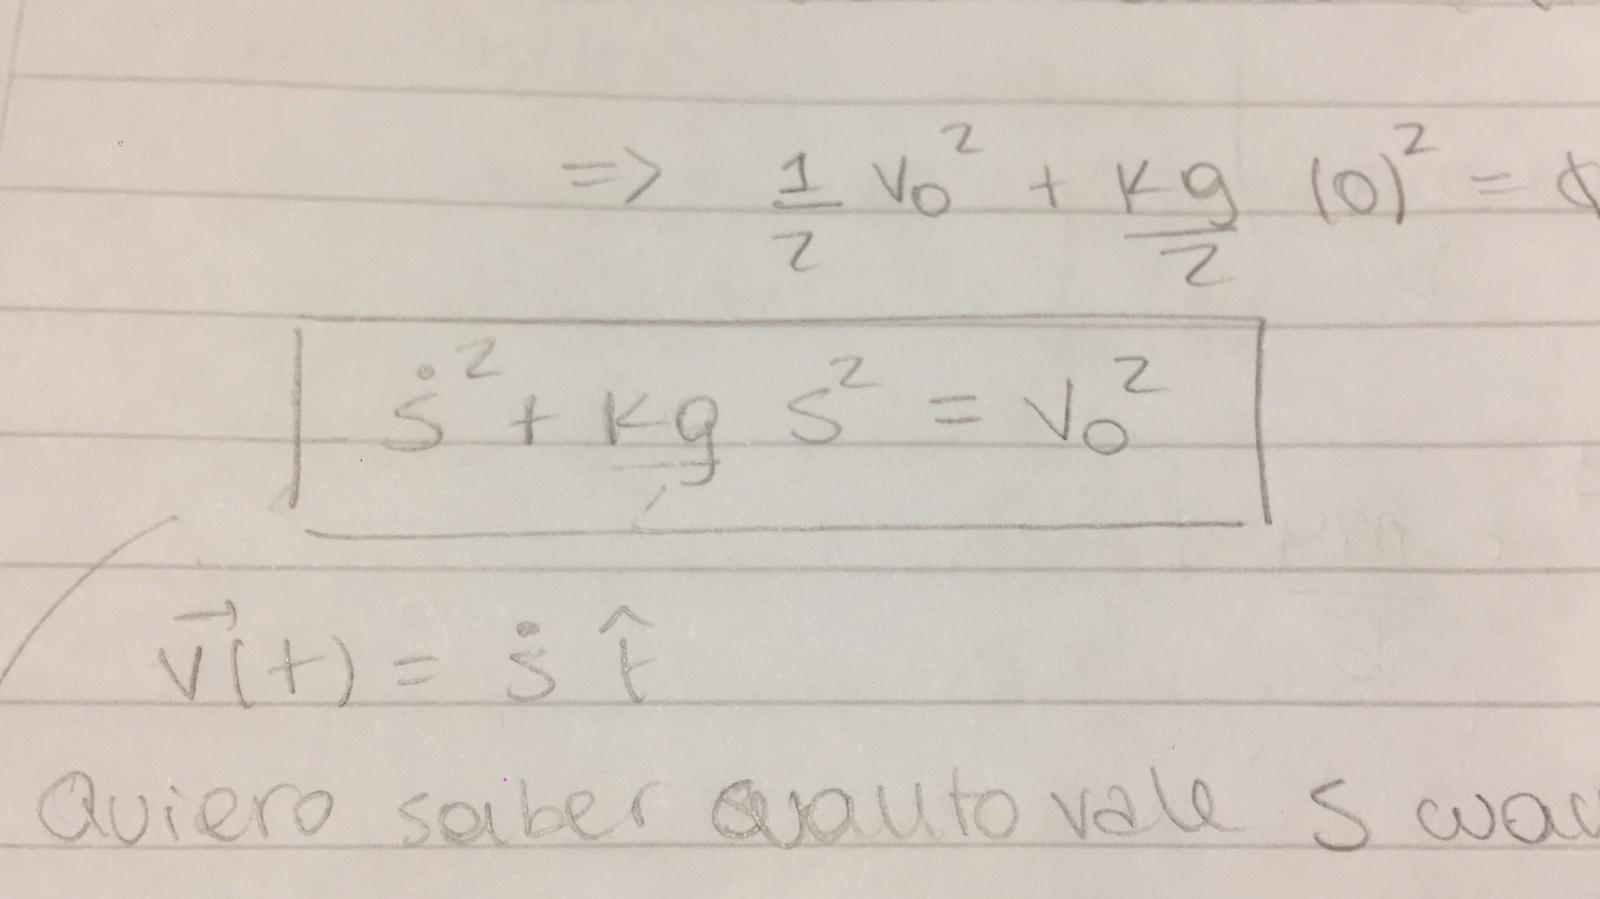 => 1/2 v₀² + kg/2 (0)² =
ṡ² + kg s² = v₀²
v⃗(t) = ṡ t̂
Quiero saber cuanto vale s